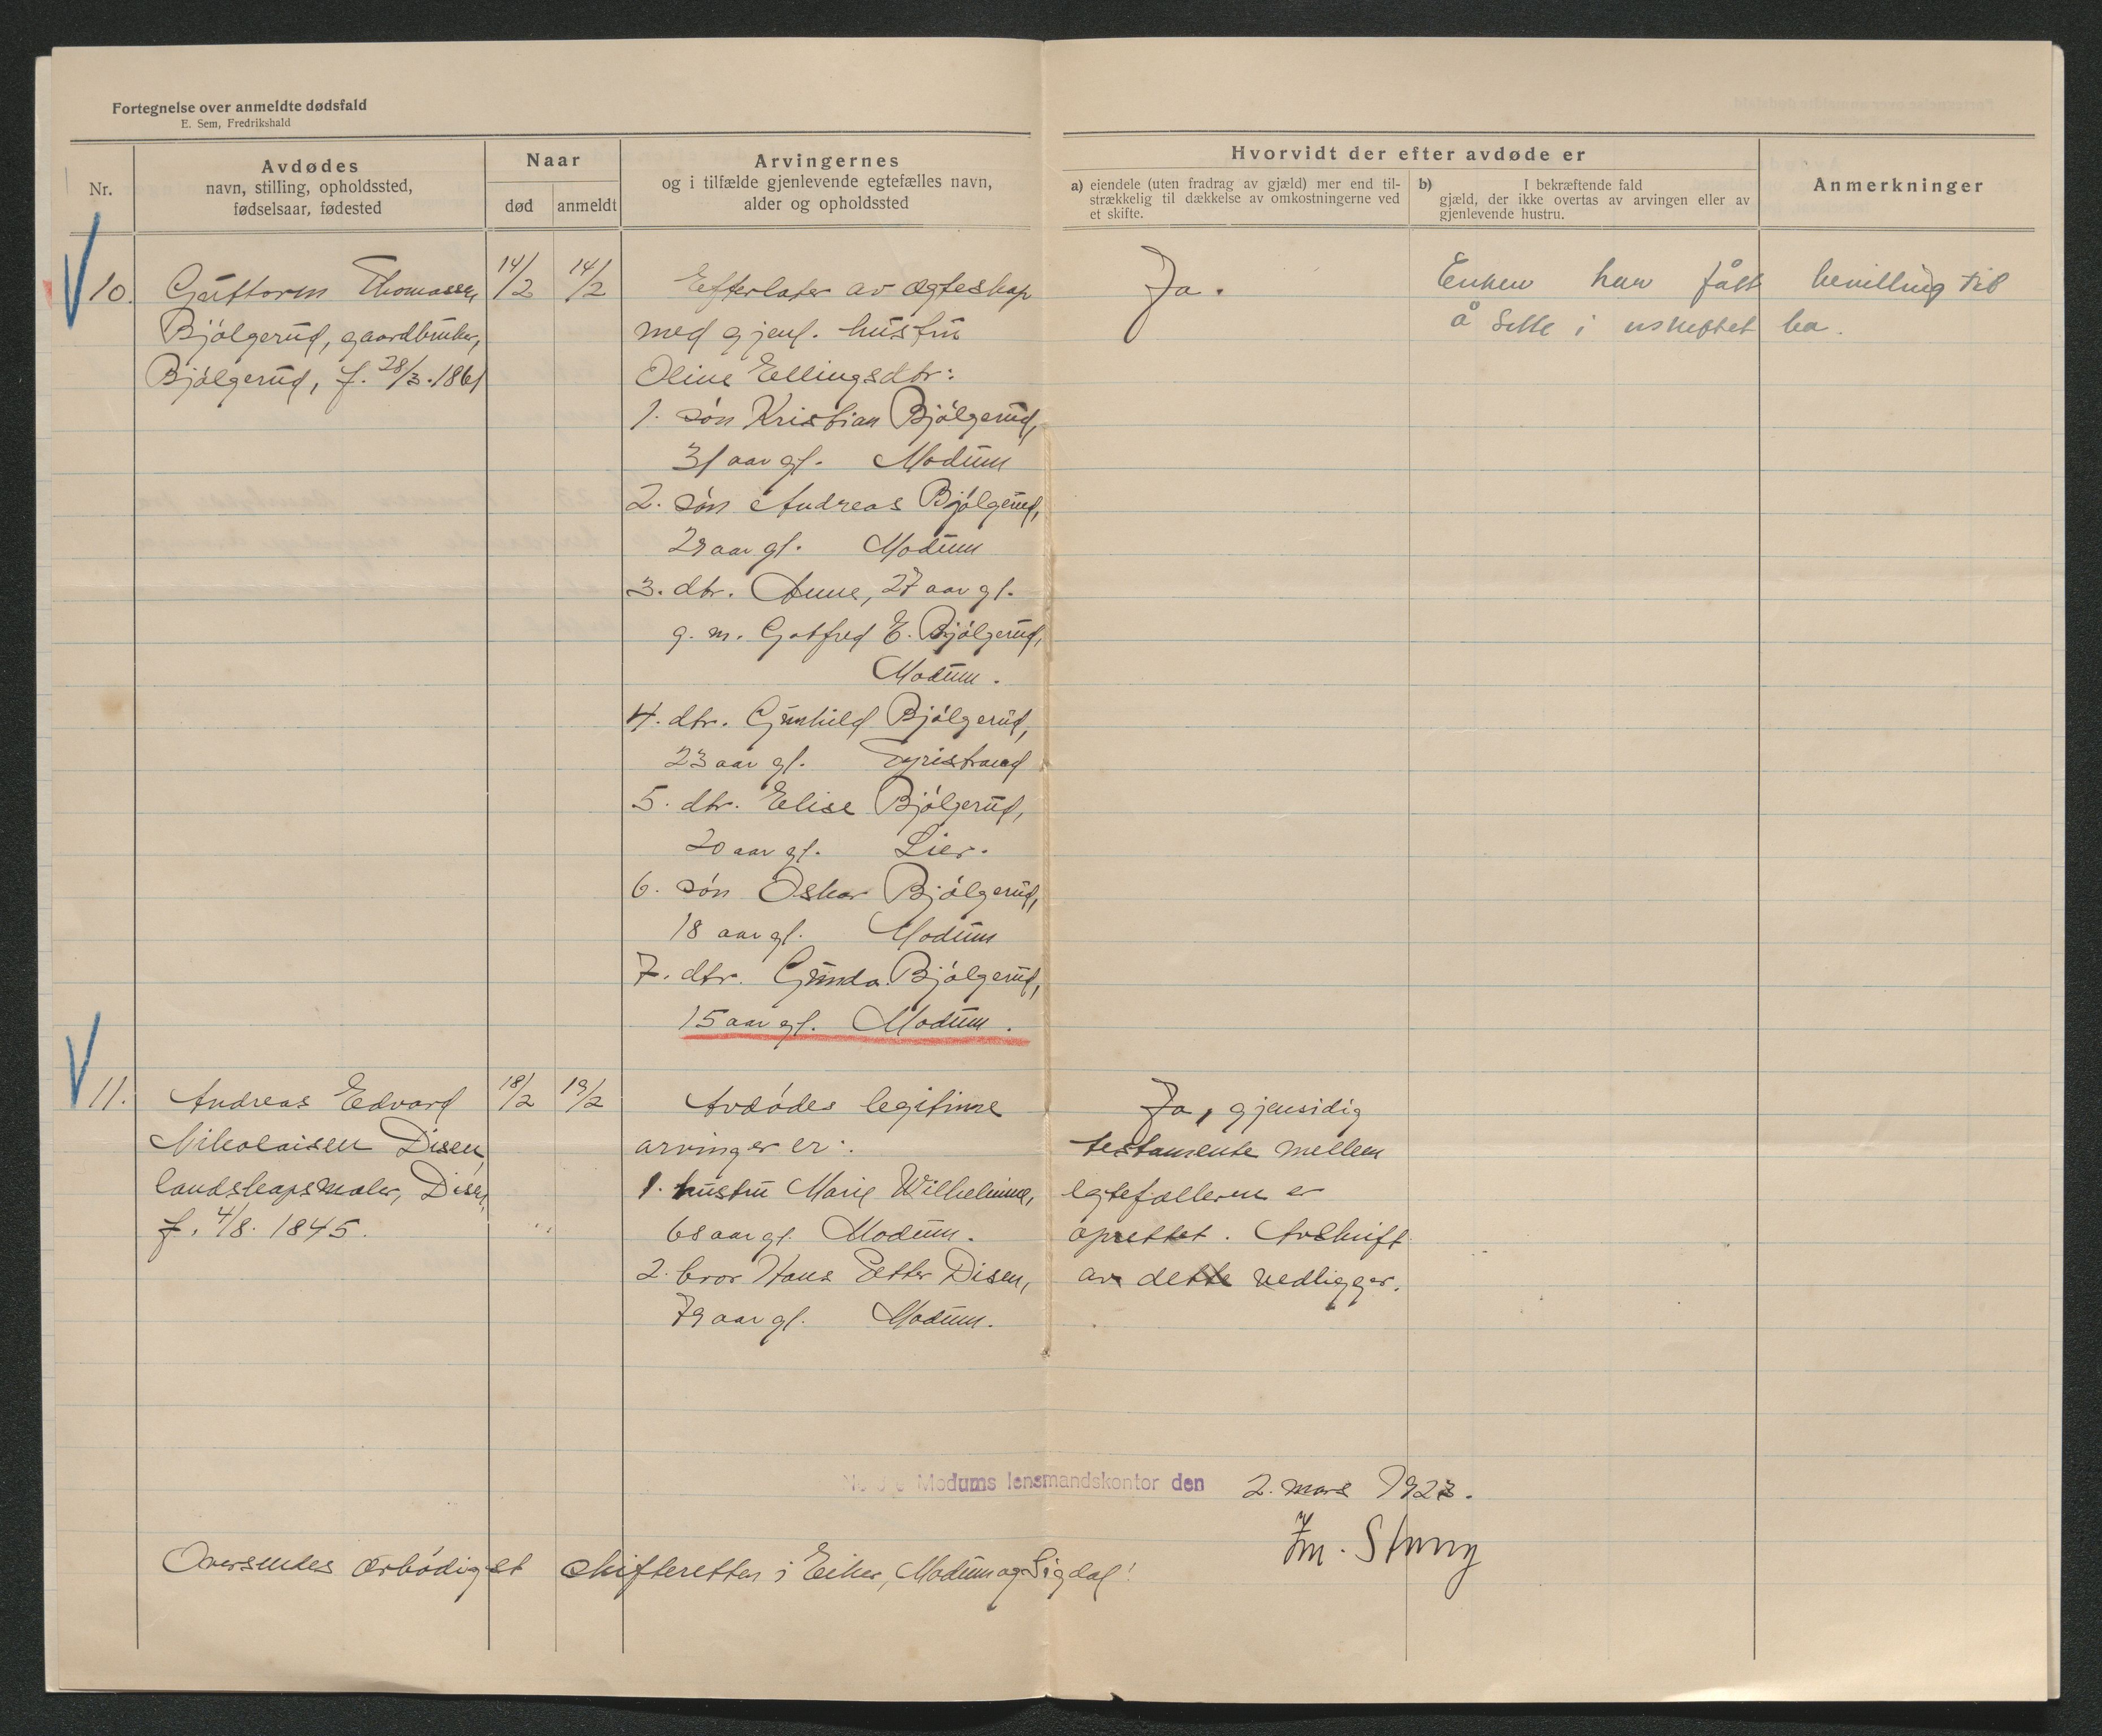 Fortegnelse over anmeldte dødsfald
E. Sem, Fredrikshald
Nr.
Avdødes
navn, stilling, opholdssted,
fødselsaar, fødested
Naar
død
anmeldt
Arvingernes
og i tilfælde gjenlevende egtefælles navn,
alder og opholdssted
Hvorvidt der efter avdøde er
a) eiendele (uten fradrag av gjæld) mer end til-
strækkelig til dækkelse av omkostningerne ved
et skifte.
b) I bekræftende fald
gjæld, der ikke overtas av arvingen eller av
gjenlevende hustru.
Anmerkninger
10.
Guttorm Thomassen
Bjølgerud, gaardbruker,
Bjølgerud, f. 28/3. 1861
14/2
14/2
Efterlater av ægteskap
med gjenl. hustru
Oline Ellingsdtr:
1. søn Kristian Bjølgerud,
31 aar gl. Modum
2. søn Andreas Bjølgerud,
29 aar gl. Modum
3. dtr. Anne, 27 aar gl.
g. m. Gotfred E. Bjølgerud,
Modum.
4. dtr. Gunhild Bjølgerud,
23 aar gl. Tyristrand
5. dtr. Elise Bjølgerud,
20 aar gl. Lier.
6. søn Oskar Bjølgerud,
18 aar gl. Modum
7. dtr. Gunda Bjølgerud,
15 aar gl. Modum.
Ja.
Enken har fått bevilling til
å sitte i uskiftet bo.
11.
Andreas Edvard
Nikolaisen Disen,
landskapsmaler, Disen,
f. 4/8. 1845.
18/2
19/2
Avdødes legitime
arvinger er:
1. hustru Marie Wilhelmine,
68 aar gl. Modum.
2. bror Hans Petter Disen,
79 aar gl. Modum.
Ja, gjensidig
testamente mellem
egtefællerne er
oprettet. Avskrift
av dette vedligger.
Nedre Modums lensmandskontor den 2. mars 1923.
Oversendes ærbødigst skifteretten i Eiker, Modum og Sigdal!